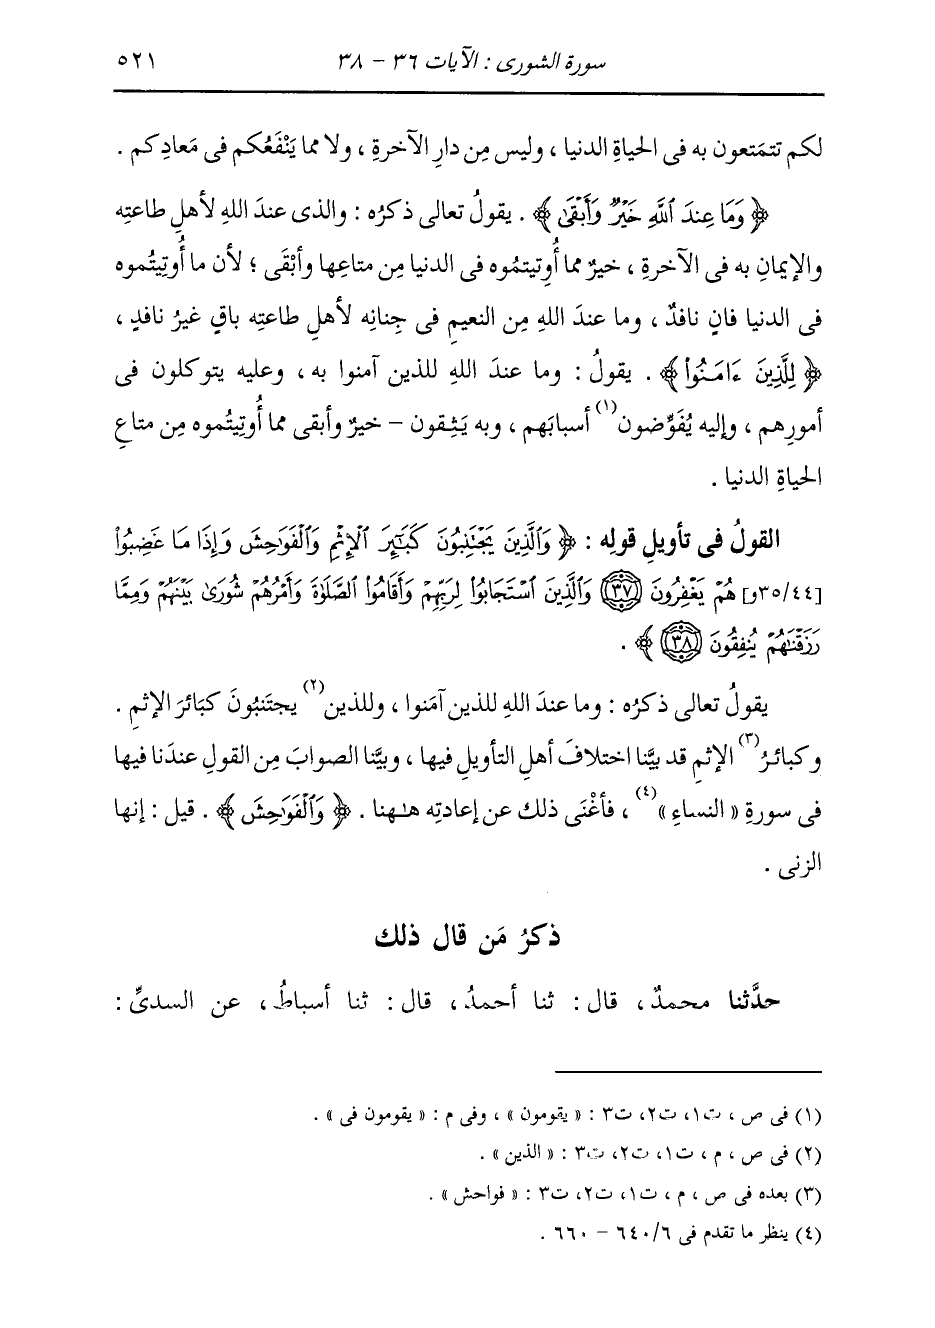 سورة الشورى : الآيات ٣٦ - ٣٨ ٥٢١
لكم تتمَتعون به فى الحياةِ الدنيا ، وليس مِن دارِ الآخرةِ ، ولا مما يَنْفَعُكم فى مَعادِكم .
﴿ وَمَا عِندَ ٱللَّهِ خَيْرٌ وَأَبْقَىٰ ﴾ . يقولُ تعالى ذكرُه : والذى عندَ اللهِ لأهلِ طاعتِه
والإيمانِ به فى الآخرةِ ، خيرٌ مما أُوتيتمُوه فى الدنيا مِن متاعِها وأبْقَى ؛ لأن ما أُوتِيتُموه
فى الدنيا فانٍ نافدٌ ، وما عندَ اللهِ مِن النعيمِ فى جِنانِه لأهلِ طاعتِه باقٍ غيرُ نافدٍ ،
﴿ لِلَّذِينَ ءَامَنُوا۟ ﴾ . يقولُ : وما عندَ اللهِ للذين آمنوا به ، وعليه يتوكلون فى
أمورِهم ، وإليه يُفَوِّضون(١) أسبابَهم ، وبه يَثِقون - خيرٌ وأبقى مما أُوتِيتُموه مِن متاعِ
الحياةِ الدنيا .
القولُ فى تأويلِ قولِه : ﴿ وَٱلَّذِينَ يَجْتَنِبُونَ كَبَٰٓئِرَ ٱلْإِثْمِ وَٱلْفَوَٰحِشَ وَإِذَا مَا غَضِبُوا۟
[٣٥/٤٤و] هُمْ يَغْفِرُونَ ﴿٣٧﴾ وَٱلَّذِينَ ٱسْتَجَابُوا۟ لِرَبِّهِمْ وَأَقَامُوا۟ ٱلصَّلَوٰةَ وَأَمْرُهُمْ شُورَىٰ بَيْنَهُمْ وَمِمَّا
رَزَقْنَٰهُمْ يُنفِقُونَ ﴿٣٨﴾ ﴾ .
يقولُ تعالى ذكرُه : وما عندَ اللهِ للذين آمَنوا ، وللذين(٢) يجتَنبُونَ كبَائرَ الإثمِ .
وكبائرُ(٣) الإثمِ قد بيَّنا اختلافَ أهلِ التأويلِ فيها ، وبيَّنا الصوابَ مِن القولِ عندَنا فيها
فى سورةِ « النساءِ »(٤) ، فأغْنَى ذلك عن إعادتِه هـٰـهنا . ﴿ وَٱلْفَوَٰحِشَ ﴾ . قيل : إنها
الزنى .
ذكرُ مَن قال ذلك
حدَّثنا محمدٌ ، قال : ثنا أحمدُ ، قال : ثنا أسباطُ ، عن السدىِّ :
(١) فى ص ، ت١ ، ت٢ ، ت٣ : « يقومون » ، وفى م : « يقومون فى » .
(٢) فى ص ، م ، ت١ ، ت٢ ، ت٣ : « الذين » .
(٣) بعده فى ص ، م ، ت١ ، ت٢ ، ت٣ : « فواحش » .
(٤) ينظر ما تقدم فى ٦٤٠/٦ - ٦٦٠ .